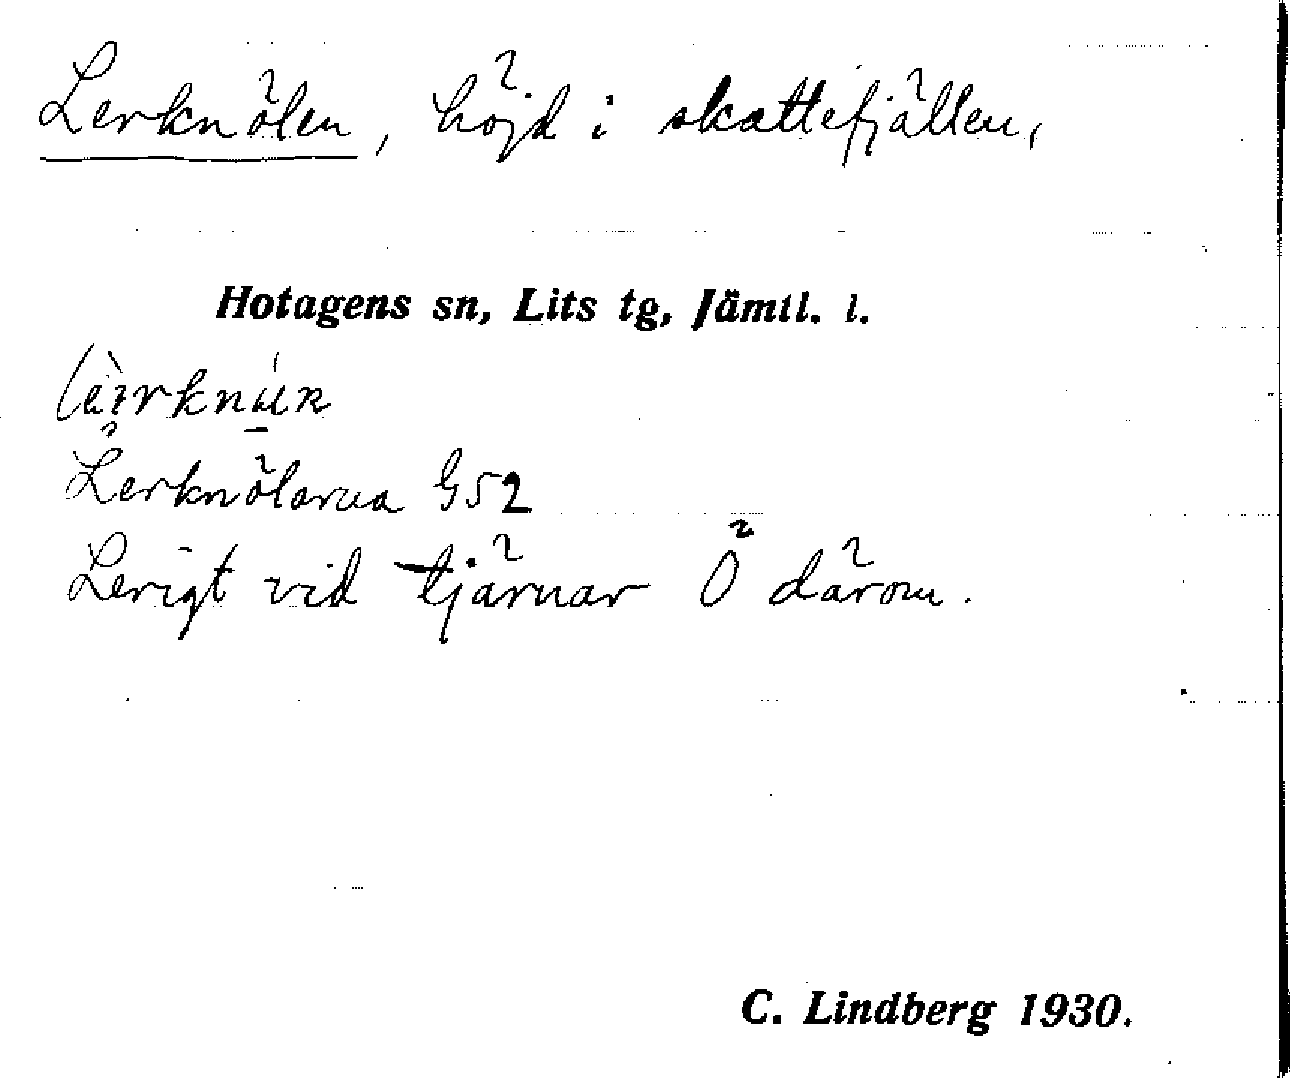 Lerknölen, höjd i skattefjällen,
Hotagens sn, Lits tg, Jämtl. l.
Lerknölarna G52
Lerigt vid tjärnar Ö därom.
C. Lindberg 1930.